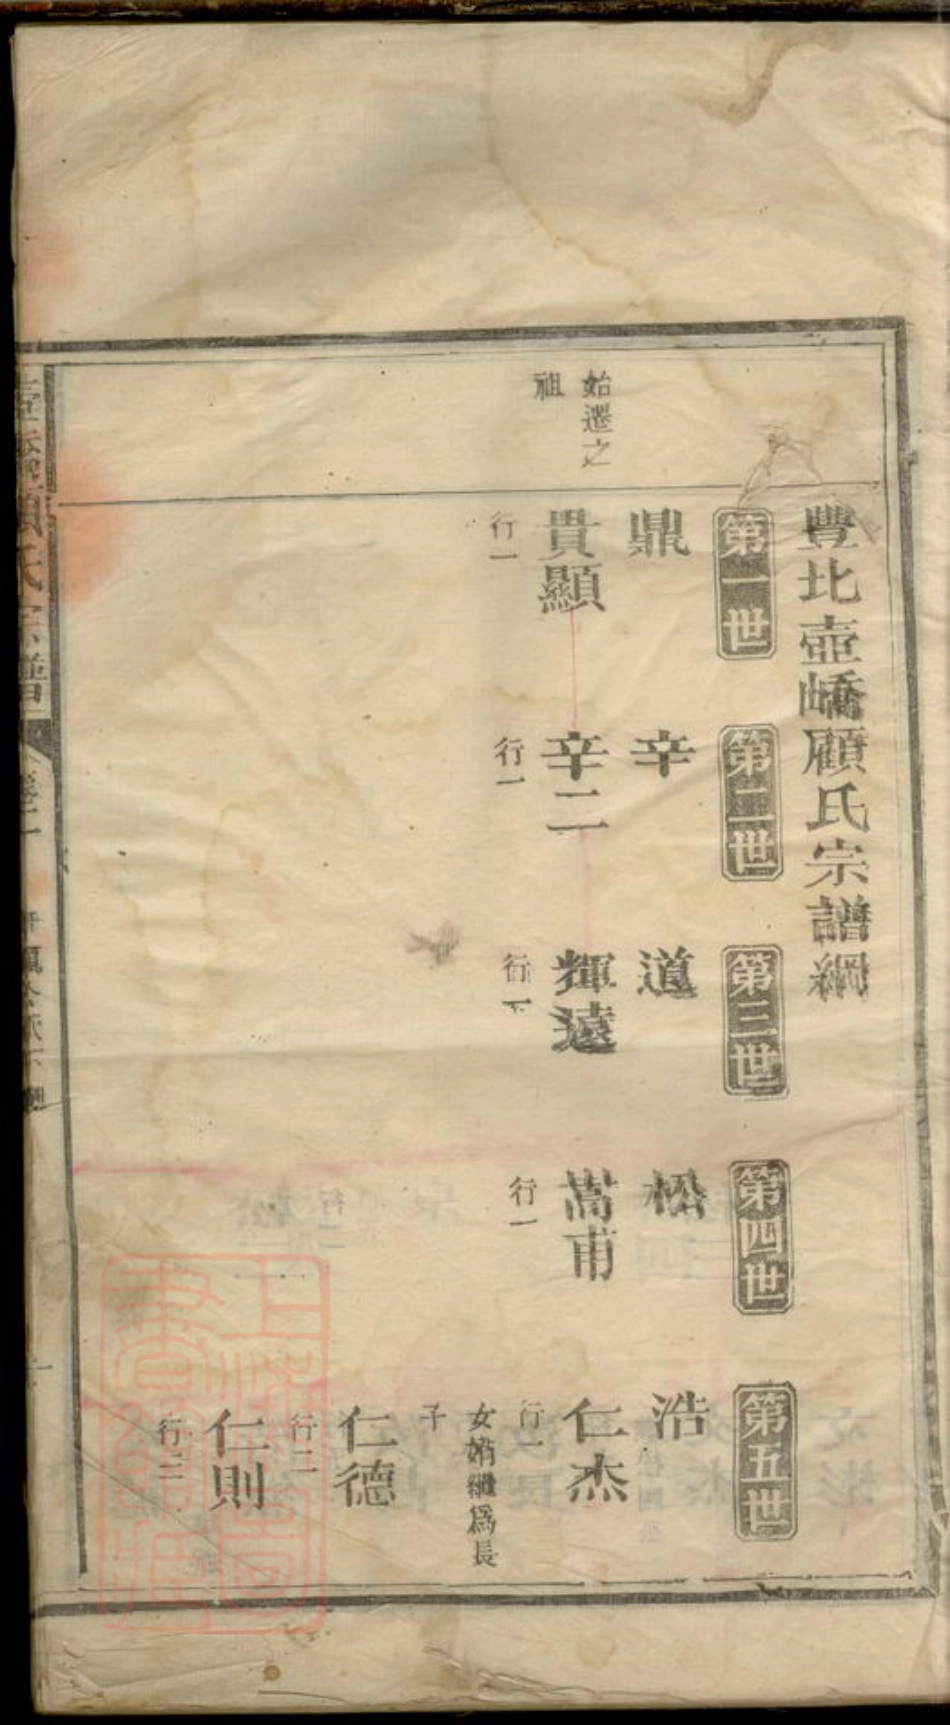 豐北壺嶠顧氏宗譜綱
第一世
第二世
第三世
第四世
第五世
鼎
辛
道
松
浩
始遷之
祖
貴顯
行一
辛二
行一
輝遠
行一
嵩甫
行一
仁杰
行一
女婿繼爲長
子
仁德
行二
仁則
行三
氏宗譜
卷二
上海圖書館藏